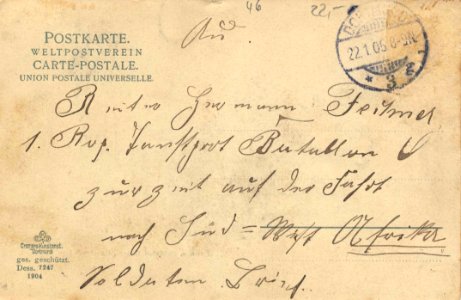 46 22,-
POSTKARTE.
WELTPOSTVEREIN
CARTE-POSTALE.
UNION POSTALE UNIVERSELLE.
An
22.1.06 8-9N.
3
Reiter Hermann
1. Transport Batallon 6
zur Zeit auf der Fahrt
nach Süd = West Afrika
Soldaten Brief.
ges. geschützt.
Dess. 7247
1904